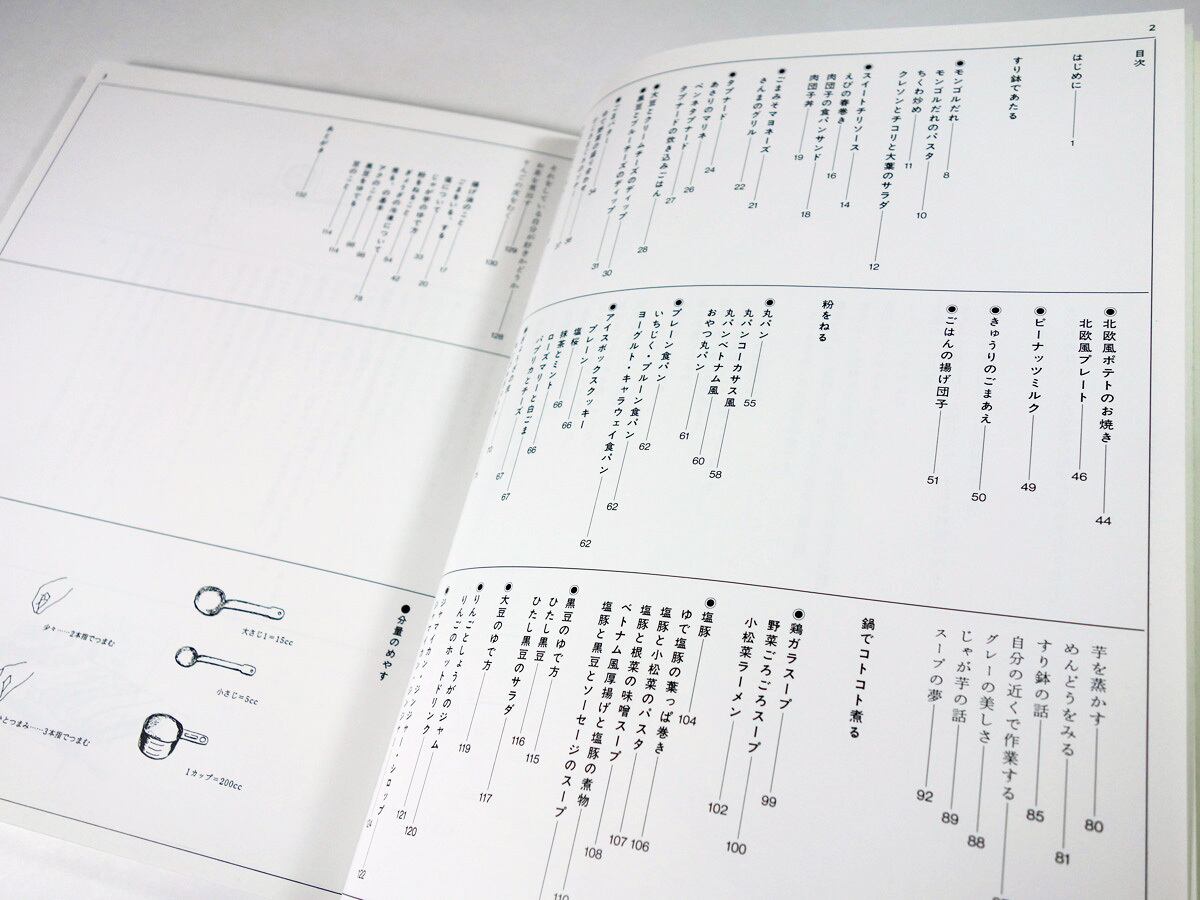 2
目次
はじめに 1
すり鉢であたる
●モンゴルだれ 8
モンゴルだれのパスタ 10
ちくわ炒め 11
クレソンとチコリと大葉のサラダ 12
●スイートチリソース 14
えびの春巻き 16
肉団子の食パンサンド 18
肉団子丼 19
●ごまみそマヨネーズ 21
さんまのグリル 22
●タプナード 24
あさりのマリネ 26
ペンネタプナード 27
タプナードの炊き込みごはん 28
●大豆とクリームチーズのディップ 30
●黒豆とブルーチーズのディップ 31
●北欧風ポテトのお焼き 44
北欧風プレート 46
●ピーナッツミルク 49
●きゅうりのごまあえ 50
●ごはんの揚げ団子 51
粉をねる
●丸パン 55
丸パンコーカサス風 58
丸パンベトナム風 60
おやつ丸パン 61
●プレーン食パン 62
いちじく・プルーン食パン 62
ヨーグルト・キャラウェイ食パン 62
●アイスボックスクッキー
プレーン 66
塩桜 66
抹茶とミント 66
ローズマリーと白ごま 67
パプリカとチーズ 67
芋を蒸かす 80
めんどうをみる 81
すり鉢の話 85
自分の近くで作業する
グレーの美しさ 88
じゃが芋の話 89
スープの夢 92
鍋でコトコト煮る
●鶏ガラスープ 99
野菜ごろごろスープ 100
小松菜ラーメン 102
●塩豚 104
ゆで塩豚の葉っぱ巻き 106
塩豚と小松菜のパスタ 107
塩豚と根菜の味噌スープ 108
ベトナム風厚揚げと塩豚の煮物 110
塩豚と黒豆とソーセージのスープ
●黒豆のゆで方 115
ひたし黒豆 116
ひたし黒豆のサラダ 117
●大豆のゆで方 119
●りんごとしょうがのジャム 120
りんごのホットドリンク 121
●ジャマイカン・ジンジャー・シロップ 122
3
揚げ油のこと 17
ごまをいる、する 20
塩について 33
じゃが芋のゆで方 42
粉をねること 54
アクのこと 98
黒豆をゆでる 114
豆のこと 114
あとがき 132
●分量のめやす
大さじ1=15cc
小さじ=5cc
1カップ=200cc
少々……2本指でつまむ
ひとつまみ……3本指でつまむ